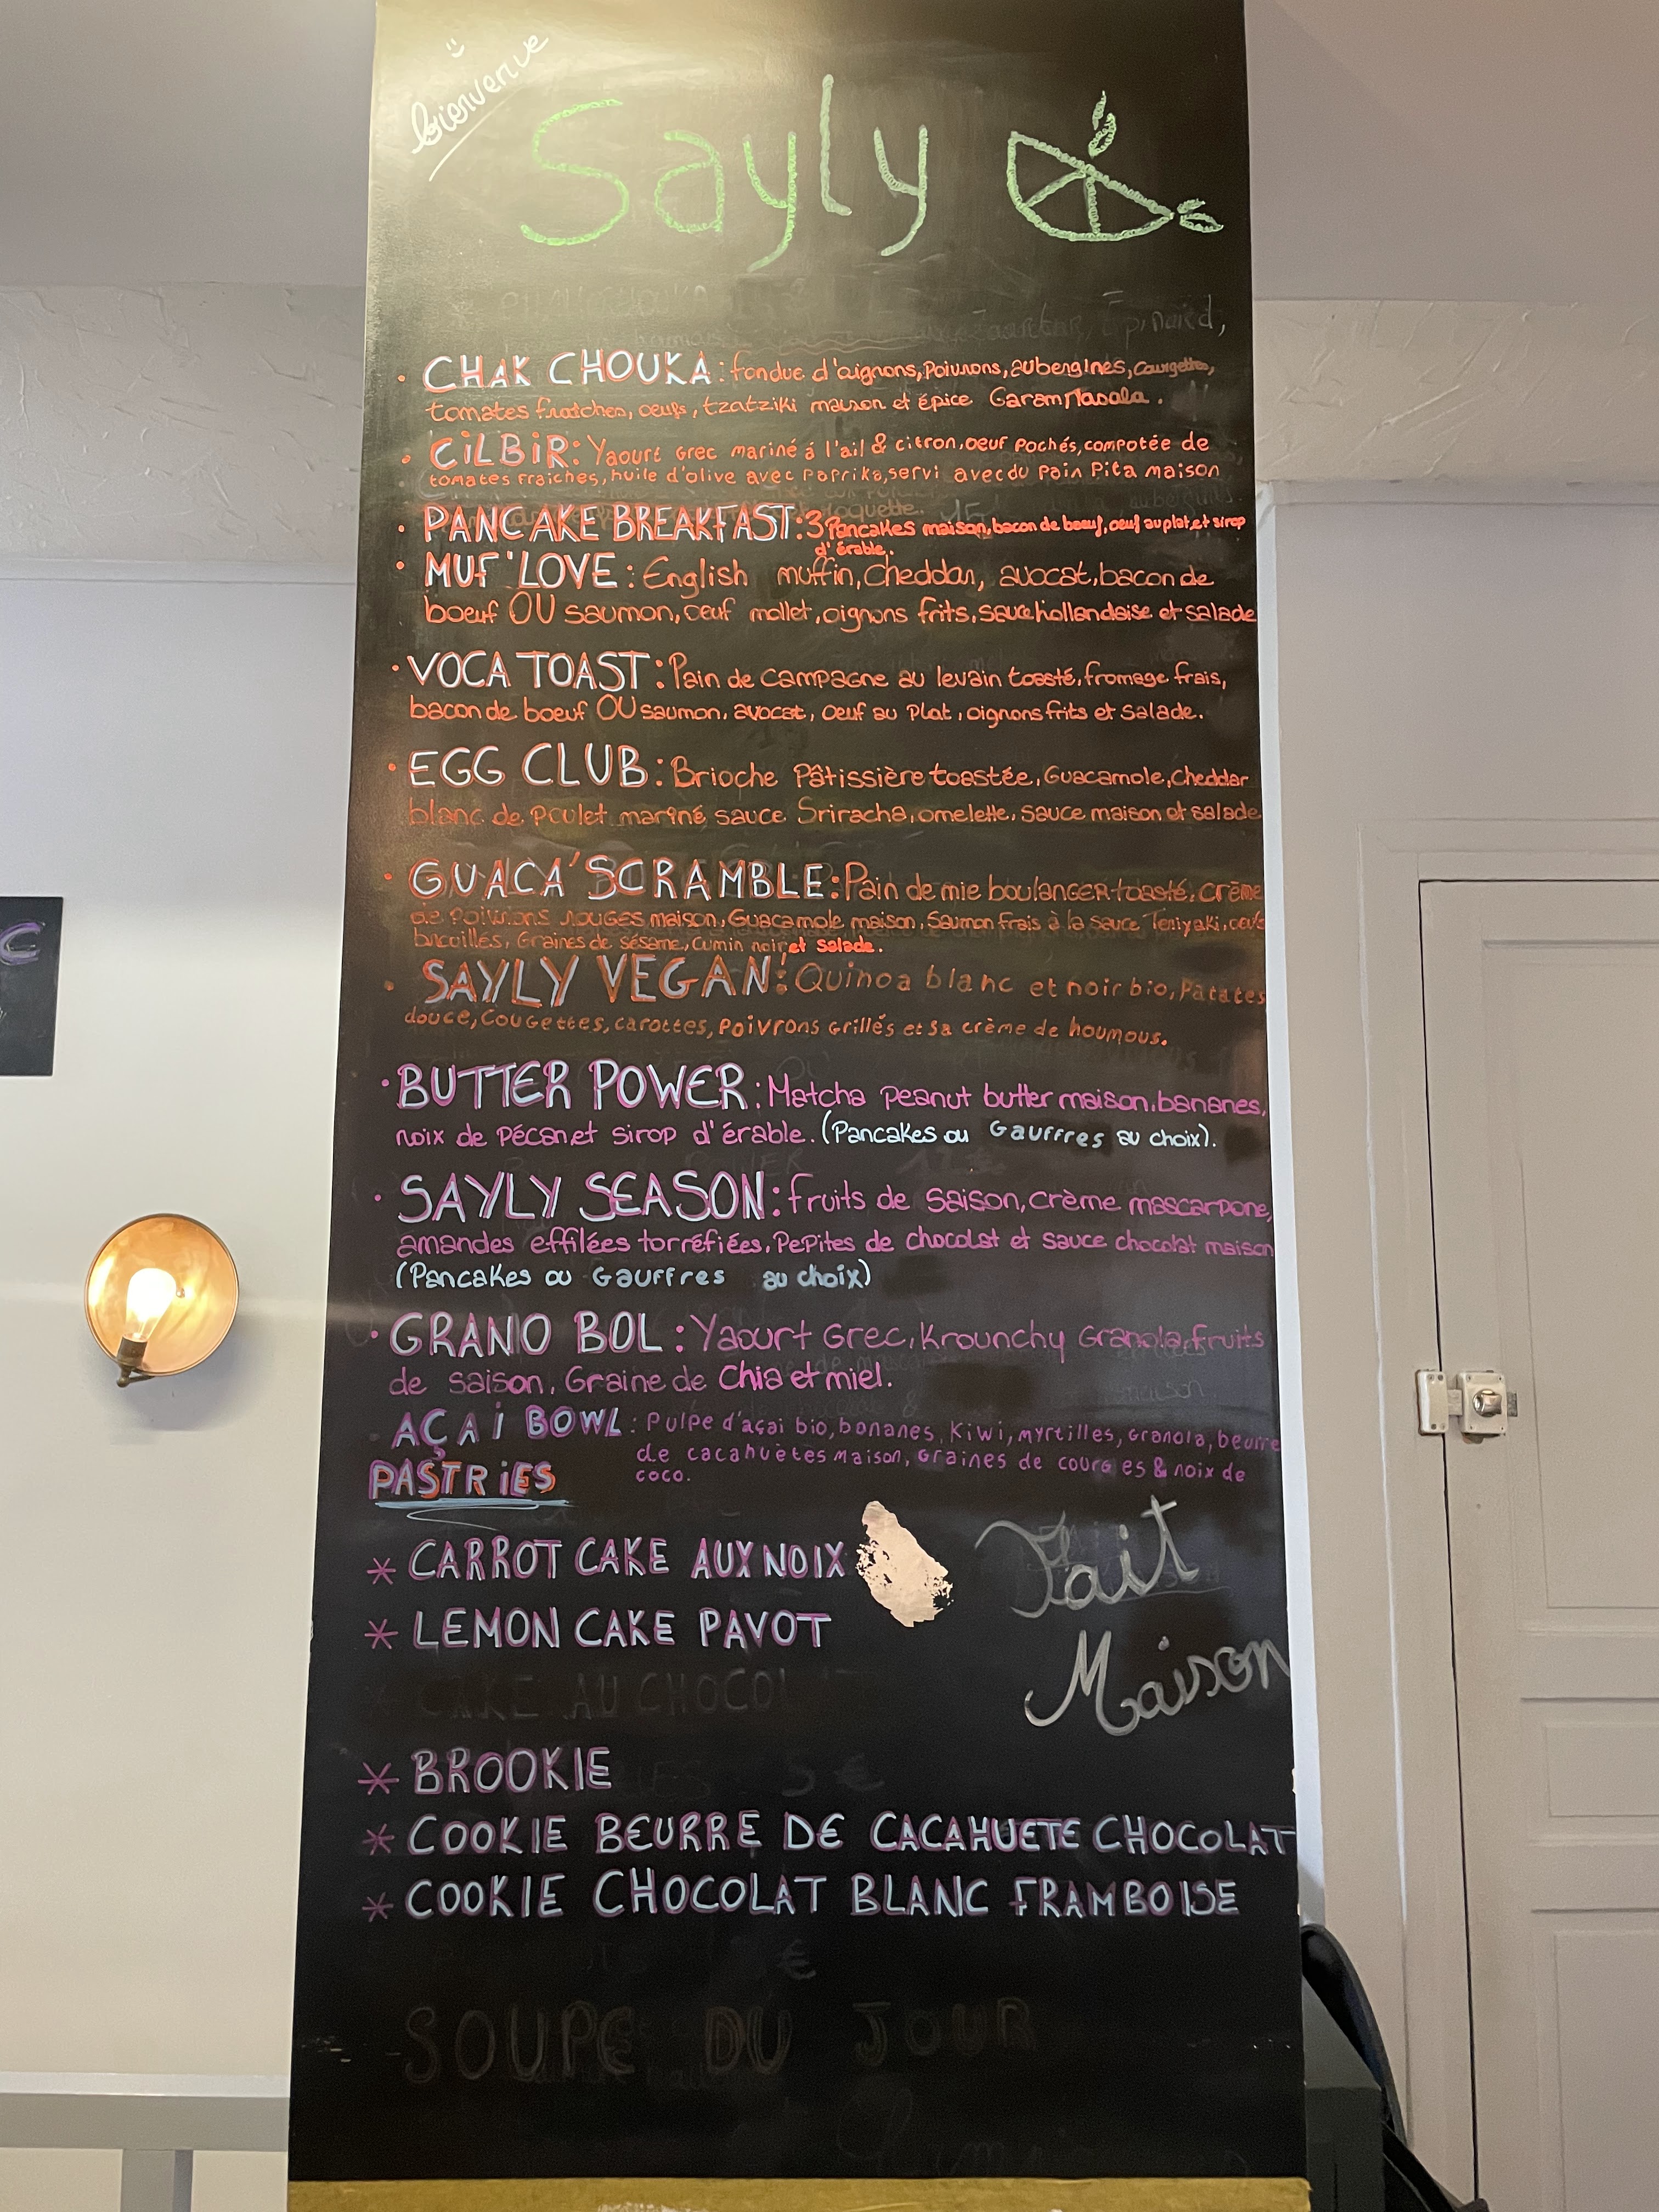 bienvenue
Sayly
• CHAK CHOUKA : fondue d'aignons, Poivrons, aubergines, Courgettes,
tomates fraîches, oeufs, tzatziki maison et épice Garam Masala.
• CiLBiR: Yaourt Grec mariné à l'ail & citron, oeuf Pochés, compotée de
tomates fraiches, huile d'olive avec Paprika, servi avec du Pain Pita maison
• PANCAKE BREAKFAST: 3 Pancakes maison, bacon de boeuf, oeuf au plat, et sirop
d'érable.
• MUF'LOVE : English muffin, Cheddar, avocat, bacon de
boeuf OU saumon, oeuf mollet, oignons frits, sauce hollandaise et salade
• VOCA TOAST : Pain de campagne au levain toasté, fromage frais,
bacon de boeuf OU saumon, avocat, oeuf au Plat, oignons frits et salade.
• EGG CLUB : Brioche Pâtissière toastée, Guacamole, Cheddar
blanc de poulet mariné sauce Sriracha, omelette, sauce maison et salade
• GUACA'SCRAMBLE : Pain de mie boulanger toasté, crème
de Poivrons rouges maison, Guacamole maison, Saumon frais à la sauce Teriyaki, oeufs
brouillés, Graines de sésame, Cumin noir et salade.
• SAYLY VEGAN : Quinoa blanc et noir bio, Patates
douce, Cougettes, carottes, Poivrons Grillés et sa crème de houmous.
• BUTTER POWER : Matcha Peanut butter maison, bananes,
noix de Pécan et sirop d'érable. (Pancakes ou Gauffres au choix).
• SAYLY SEASON : fruits de saison, crème mascarpone,
amandes effilées torréfiées, Pepites de chocolat et sauce chocolat maison
(Pancakes ou Gauffres au choix)
• GRANO BOL : Yaourt Grec, Krounchy Granola, fruits
de saison, Graine de Chia et miel.
• AÇAi BOWL : Pulpe d'açai bio, bananes, Kiwi, myrtilles, Granola, beurre
de cacahuètes maison, Graines de courges & noix de
coco.
PASTRiES
* CARROT CAKE AUX NOIX
* LEMON CAKE PAVOT
Fait
Maison
CAKE AU CHOCOLAT
* BROOKIE
* COOKIE BEURRE DE CACAHUETE CHOCOLAT
* COOKIE CHOCOLAT BLANC FRAMBOISE
SOUPE DU JOUR